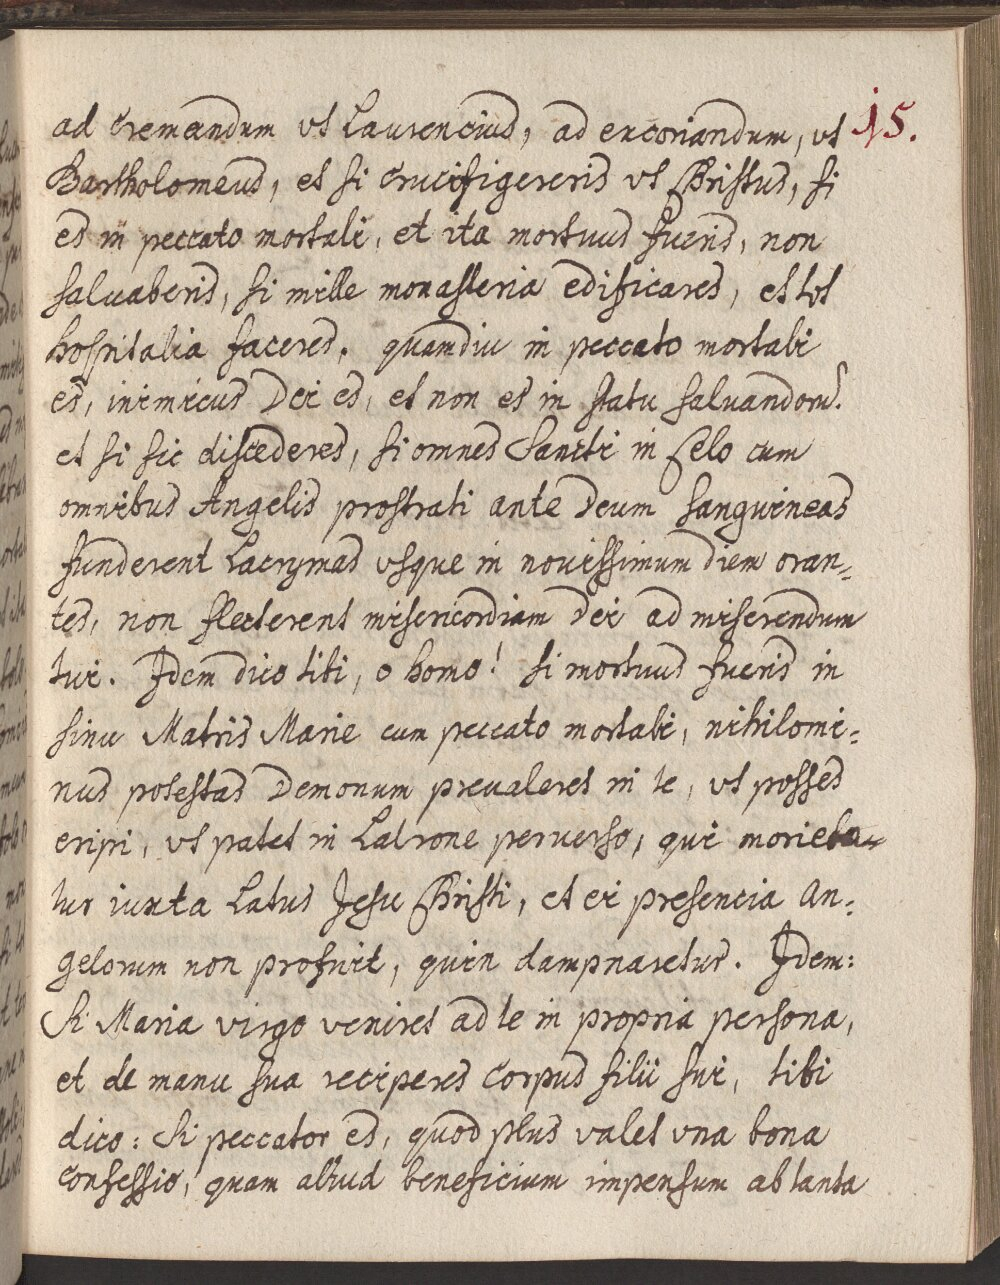 ad cremandum ut Laurencius, ad excoriandum, ut 15.
Bartholomeus, et si crucifigereris ut Christus, si
es in peccato mortali, et ita mortuus fueris, non
salvaberis, si mille monasteria edificares, et tot
hospitalia faceres, quamdiu in peccato mortali
es, inimicus Dei es, et non es in statu salvandorũ.
et si sic discederes, si omnes Sancti in Celo cum
omnibus Angelis prostrati ante Deum sanguineas
funderent Lacrymas usque in novissimum diem oran-
tes, non flecterent misericordiam Dei ad miserendum
tui. Idem dico tibi, o homo! si mortuus fueris in
sinu Matris Marie cum peccato mortali, nihilomi-
nus potestas Demonum prevaleret in te, ut posses
eripi, ut patet in Latrone perverso, qui morieba-
tur iuxta Latus Jesu Christi, et ei presencia An-
gelorum non profuit, quin dampnaretur. Idem:
Si Maria virgo veniret ad te in propria persona,
et de manu sua reciperes Corpus filii sui, tibi
dico: Si peccator es, quod plus valet una bona
Confessio, quam aliud beneficium impensum ab tanta